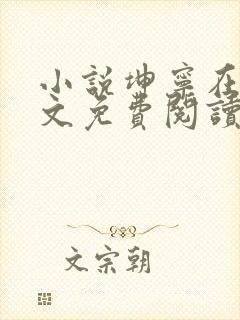 小説坤寧在
文免費閱讀
文宗朝